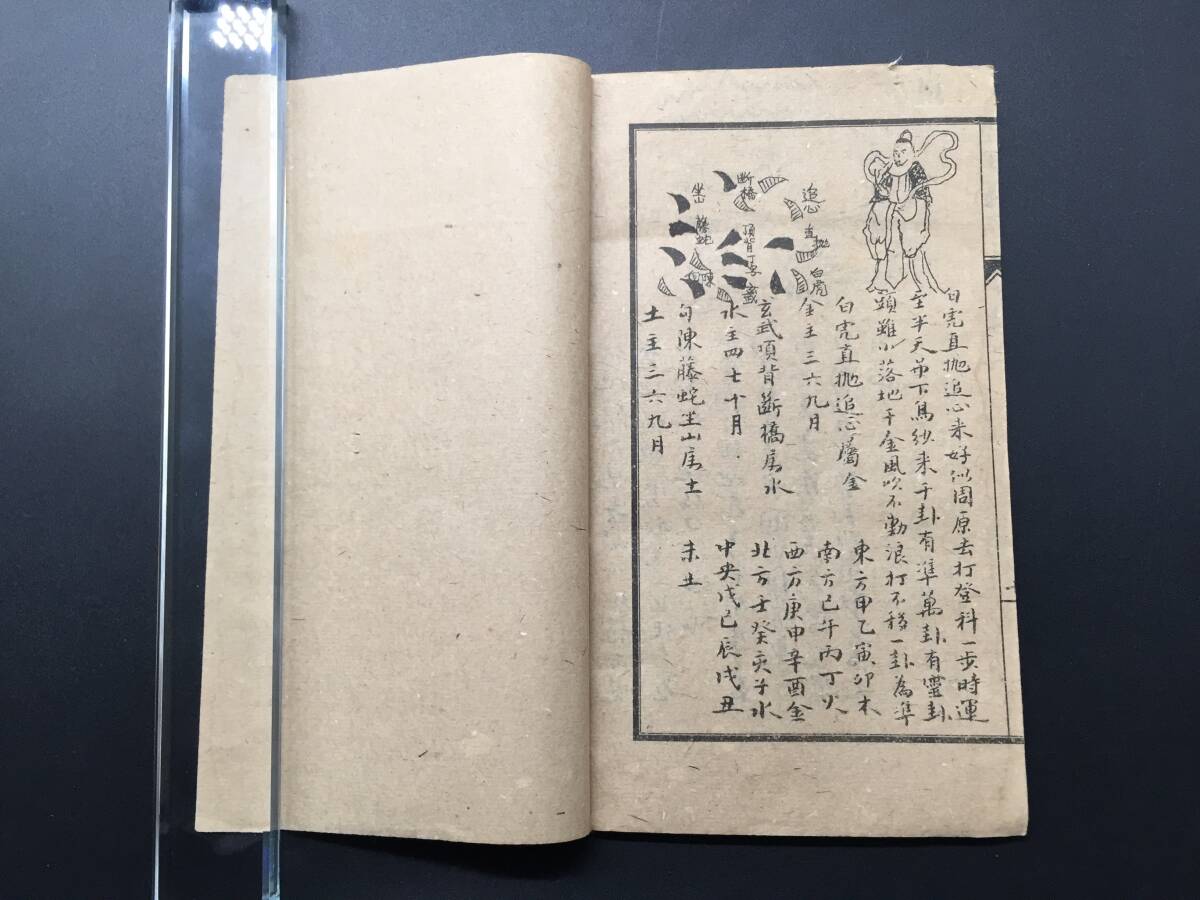 白虎直抛追心来好似周原去打登科一步時運
至半天吊下烏紗来千卦有準萬卦有靈卦
頭雖小落地千金風吹不動浪打不移一卦為準
白虎直抛追心屬金
金主三六九月
玄武項背斷橋属水
水主四七十月
勾陳藤蛇坐山属土
土主三六九月
東方甲乙寅卯木
南方巳午丙丁火
西方庚申辛酉金
北方壬癸亥子水
中央戊己辰戌丑
未土
追心
直抛
白虎
断橋
項背
藤蛇
坐山